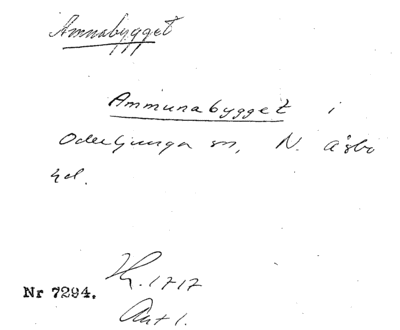 Amnabygget
Ammunabygget i
Oderljunga sn, N. Åsbo
hd.
Nr 7294.
1717
Ant 1.